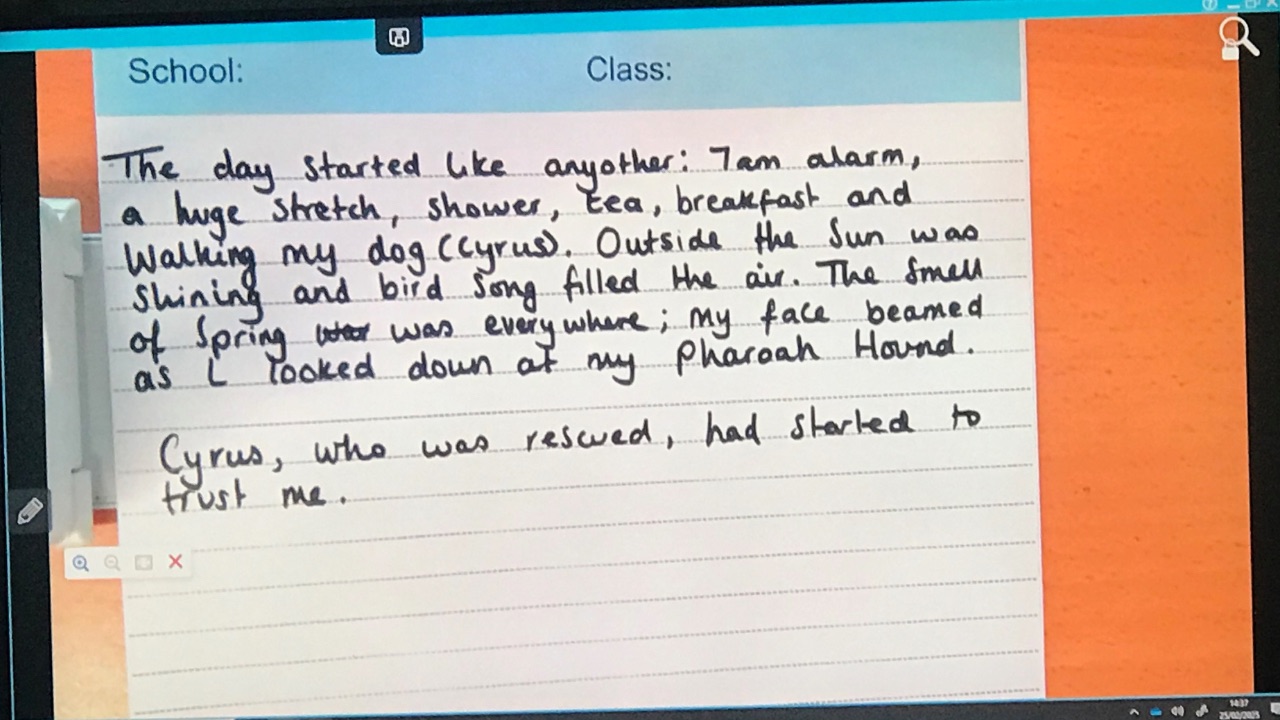 School: Class:
The day started like anyother: 7am alarm,
a huge stretch, shower, tea, breakfast and
walking my dog (Cyrus). Outside the sun was
shining and bird song filled the air. The smell
of Spring was everywhere; my face beamed
as I looked down at my Pharoah Hound.
Cyrus, who was rescued, had started to
trust me.
14:37
25/02/2025